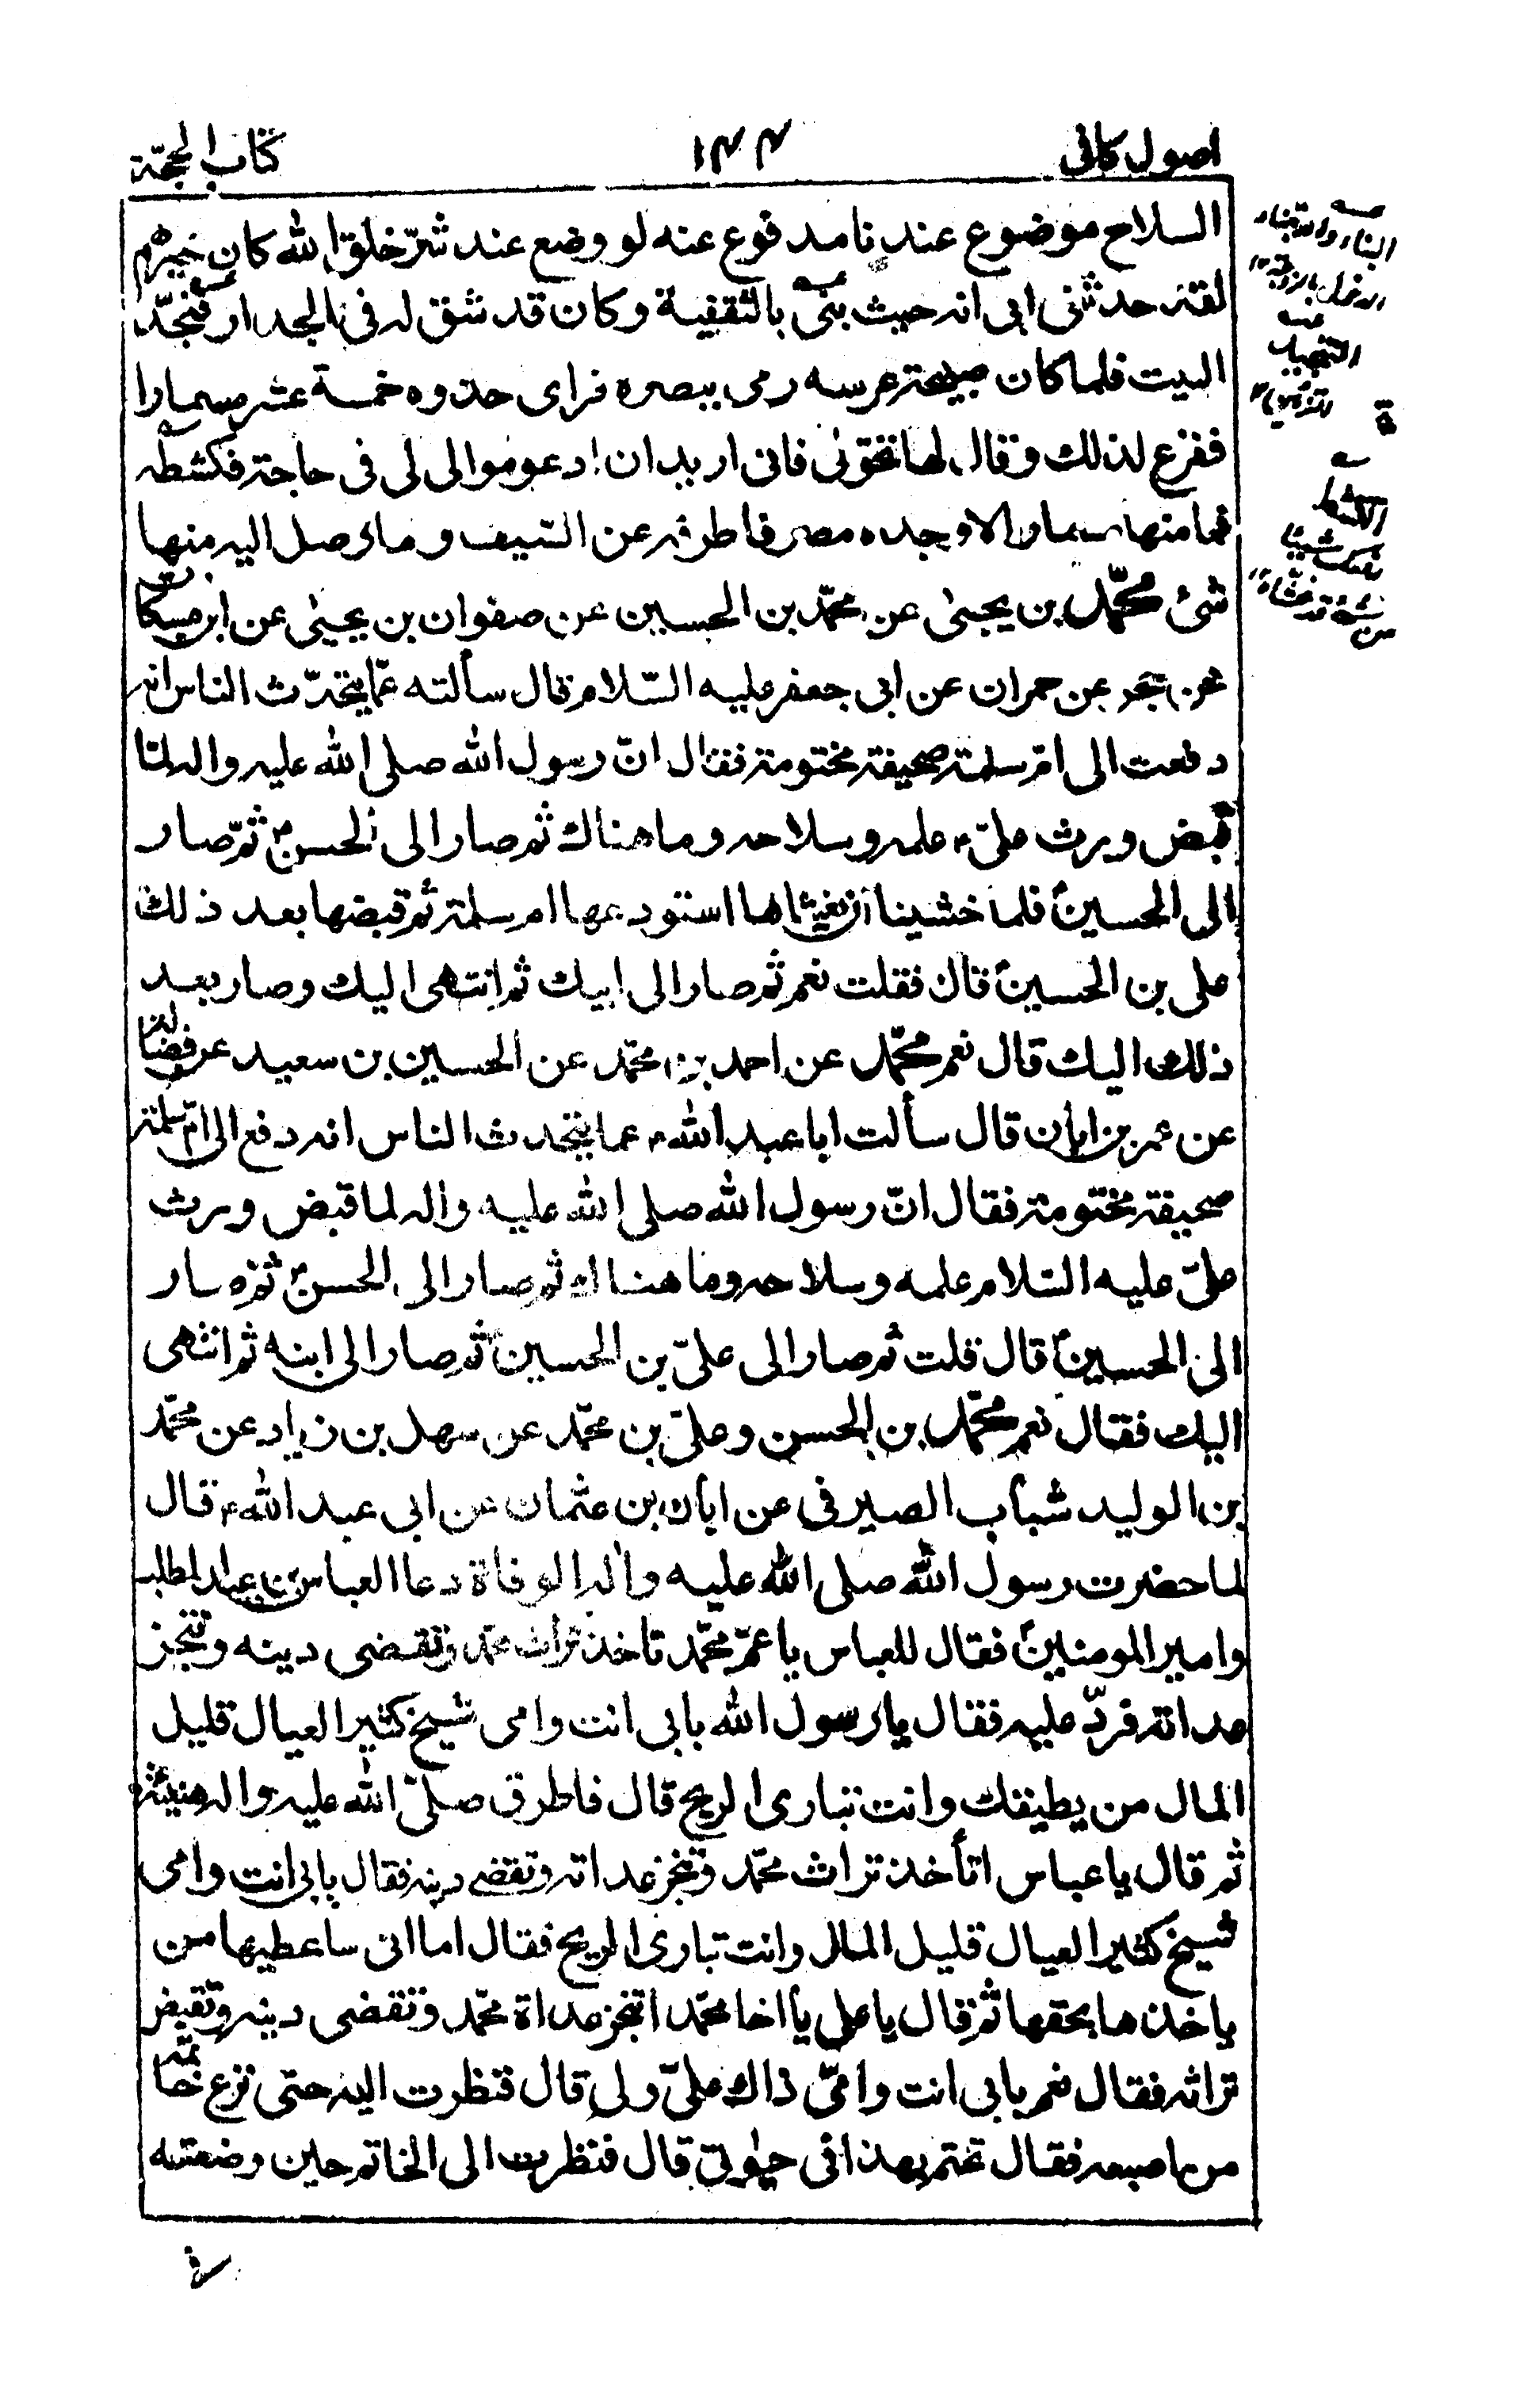 اصول كافى ١٤٤ كتاب الحجّة
السلاح موضوع عندنا مدفوع عنه لو وضع عند شرّ خلق الله كان خيرهم
لقد حدثنى ابى انه حيث بنى بالثقفية وكان قد شق له فى الجدار فنجّد
البيت فلما كان صبيحة عرسه رمى ببصره فراى حذوه خمسة عشر مسمارا
ففزع لذلك وقال لها تحوّلى فانى اريد ان ادعو موالى لى فى حاجة فكشطه
فما منها مسمار الا وجده مصرفا طرفه عن السيف وما وصل اليه منها
شئ محمّد بن يحيى عن محمّد بن الحسين عن صفوان بن يحيى عن ابن مسكان
عن حجر عن حمران عن ابى جعفر عليه السّلام قال سألته عمّا يتحدّث الناس انه
دفعت الى امّ سلمة صحيفة مختومة فقال انّ رسول الله صلى الله عليه واله لمّا
قبض ورث علىّ ع علمه وسلاحه وما هناك ثم صار الى الحسن ع ثمّ صار
الى الحسينؑ فلما خشينا ان نغشاها استودعها ام سلمة ثم قبضها بعد ذلك
على بن الحسينؑ قال فقلت نعم ثم صار الى ابيك ثم انتهى اليك وصار بعد
ذلك اليك قال نعم محمّد عن احمد بن محمّد عن الحسين بن سعيد عن فضالة
عن عمر بن ابان قال سألت ابا عبد الله ع عما يتحدث الناس انه دفع الى امّ سلمة
صحيفة مختومة فقال انّ رسول الله صلى الله عليه واله لما قبض ورث
علىّ عليه السّلام علمه وسلاحه وما هناك ثم صار الى الحسن ع ثم صار
الى الحسينؑ قال قلت ثم صار الى علىّ بن الحسينؑ ثم صار الى ابنه ثم انتهى
اليك فقال نعم محمّد بن الحسن وعلىّ بن محمّد عن سهل بن زياد عن محمّد
بن الوليد شباب الصيرفى عن ابان بن عثمان عن ابى عبد الله ع قال
لما حضرت رسول الله صلى الله عليه واله الوفاة دعا العباس بن عبد المطلب
وامير المومنينؑ فقال للعباس يا عمّ محمّد تاخذ تراث محمّد وتقضى دينه وتنجز
عداته فردّ عليه فقال يا رسول الله بابى انت وامى شيخ كثير العيال قليل
المال من يطيقك وانت تبارى الريح قال فاطرق صلىّ الله عليه واله هنيئة
ثم قال يا عباس اتأخذ تراث محمّد وتنجز عداته وتقضى دينه فقال بابى انت وامى
شيخ كثير العيال قليل المال وانت تبارى الريح فقال اما انى ساعطيها من
ياخذها بحقها ثم قال يا على يا اخا محمّد اتنجز عداة محمّد وتقضى دينه وتقبض
تراثه فقال نعم بابى انت وامىّ ذاك علىّ ولى قال فنظرت اليه حتى نزع خاتمه
من اصبعه فقال تختم بهذا فى حيوتى قال فنظرت الى الخاتم حين وضعته
البناء والابتناء
الدخول بالزوجة
التنجيد
التزيين
الكشط
رفعك شيئا
من شئ قد غشاه